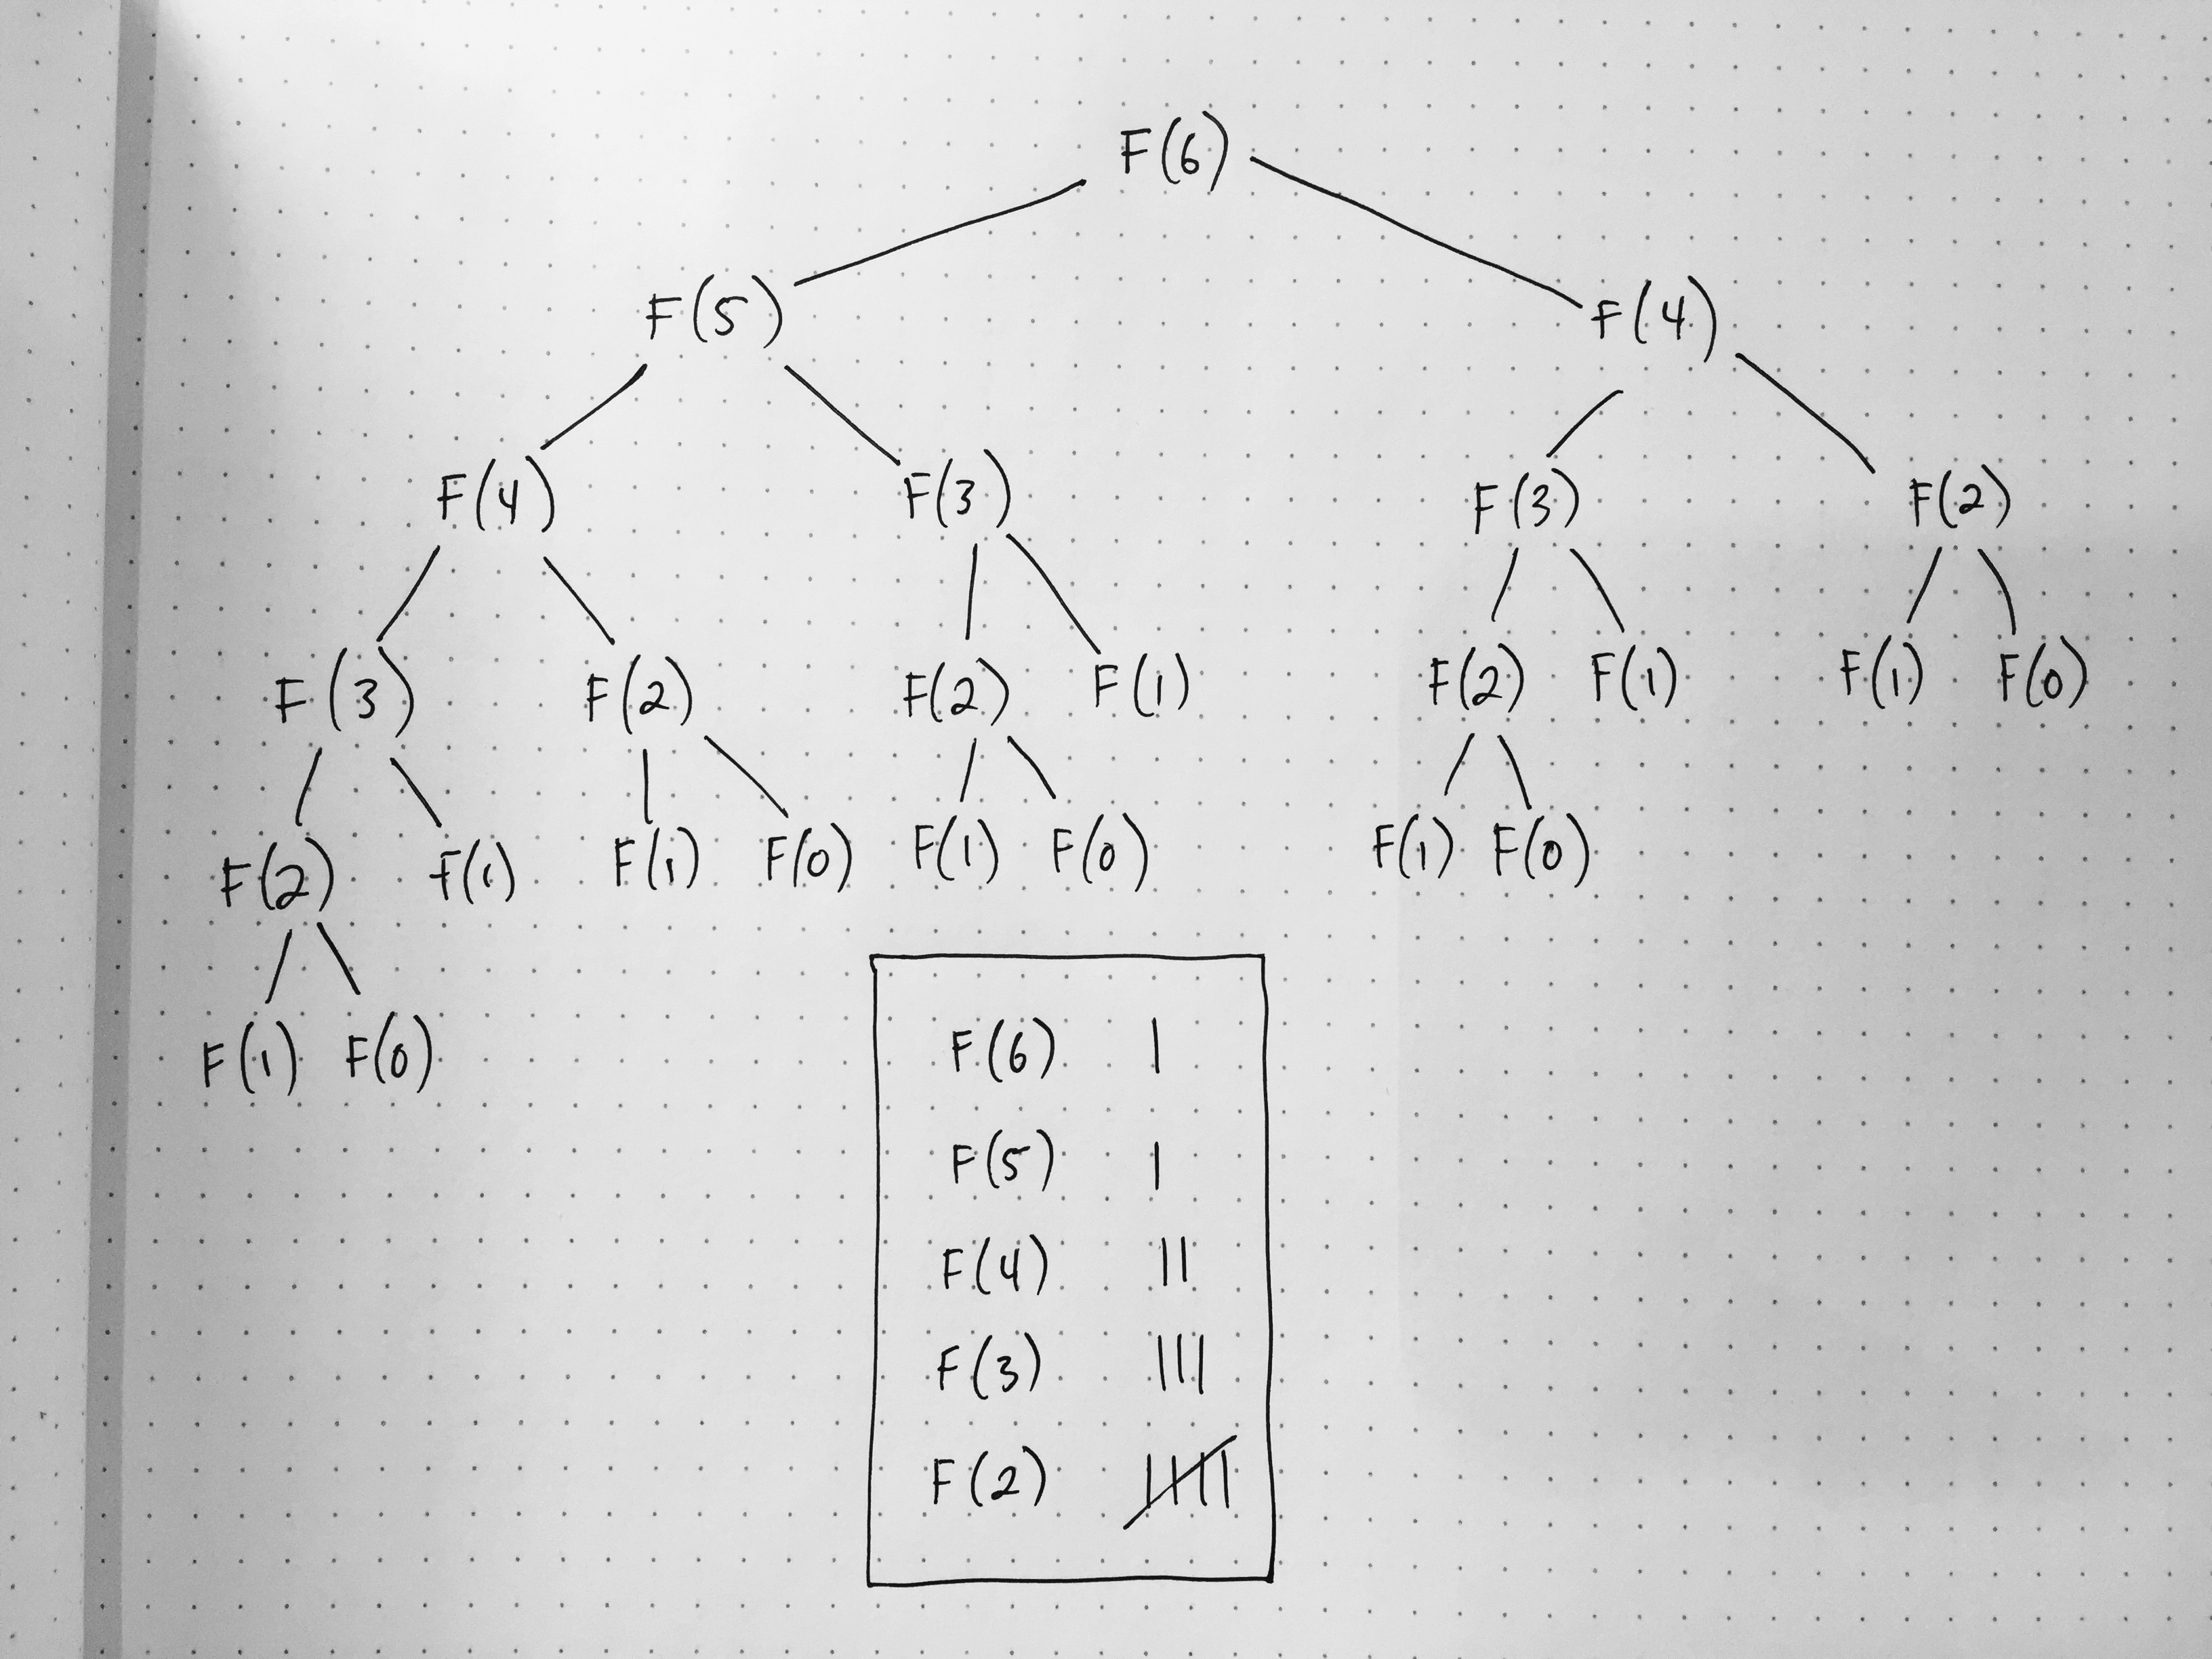 F(6)
F(5) F(4)
F(4) F(3) F(3) F(2)
F(3) F(2) F(2) F(1) F(2) F(1) F(1) F(0)
F(2) F(1) F(1) F(0) F(1) F(0) F(1) F(0)
F(1) F(0)
F(6) |
F(5) |
F(4) ||
F(3) |||
F(2) 卌